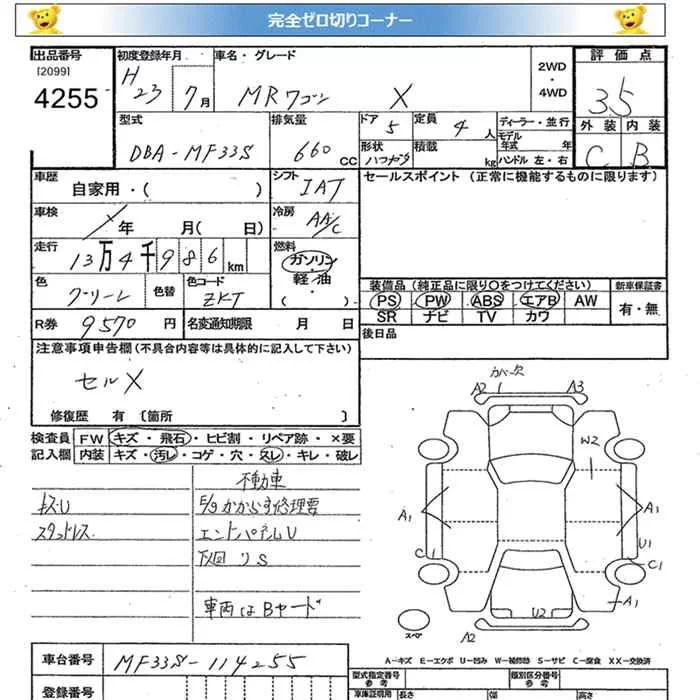 完全ゼロ切りコーナー
出品番号 初度登録年月 車名・グレード 2WD・4WD 評価点
[2099]
4255 H 23 7月 MRワゴン X 35
型式 排気量 ドア 5 定員 4人 ディーラー・並行 外装 内装
DBA-MF33S 660 CC 形状 積載 kg モデル年式 年 ハンドル 左・右 C B
車歴 自家用・( ) シフト IAT セールスポイント (正常に機能するものに限ります)
車検 年 月( 日) 冷房 AA/C
走行 13万4千986km 燃料 ガソリン・軽油・( )
色 グリーン 色替 色コード ZKT
装備品 (純正品に限り○をつけてください) 新車保証書
PS PW ABS エアB AW 有・無
SR ナビ TV カワ
R券 9570円 名変通知期限 月 日 後日品
注意事項申告欄(不具合内容等は具体的に記入して下さい)
セルX
修復歴 有 〔箇所 〕
検査員 FW キズ・飛石・ヒビ割・リペア跡・×要
記入欄 内装 キズ・汚レ・コゲ・穴・スレ・キレ・破レ
不動車
E/gかからず修理要
スタッドレス エンドパネルU
下回りS
車両はBヤード
カバー欠
A2 1 A3
W2
A1 A1
U1
C1 C1
A1
U2
スペア A2
A-キズ E-エクボ U-凹み W-補修跡 S-サビ C-腐食 XX-交換済
車台番号 MF33S-114255
型式指定番号 参考 類別区分番号 参考
登録番号 車庫証明用 長さ 幅 高さ